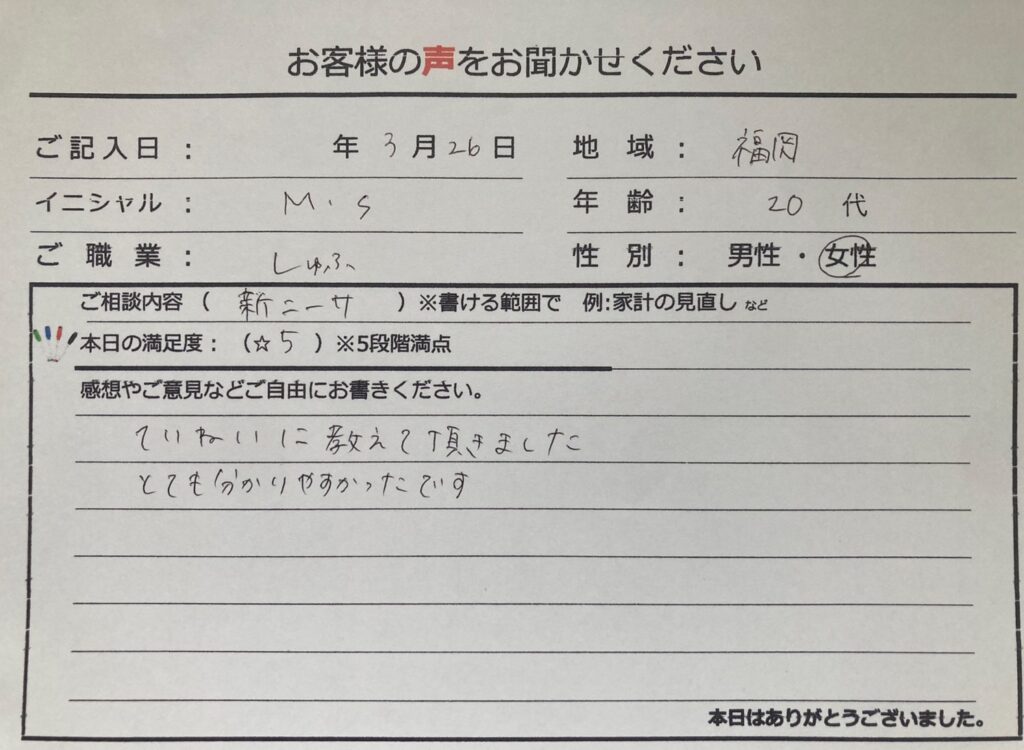 お客様の声をお聞かせください
ご記入日： 年 3 月 26 日 地域： 福岡
イニシャル： M.S 年齢： 20 代
ご職業： しゅふ 性別： 男性・女性
ご相談内容（ 新ニーサ ）※書ける範囲で 例:家計の見直し など
本日の満足度：（☆ 5 ）※5段階満点
感想やご意見などご自由にお書きください。
ていねいに教えて頂きました
とても分かりやすかったです
本日はありがとうございました。